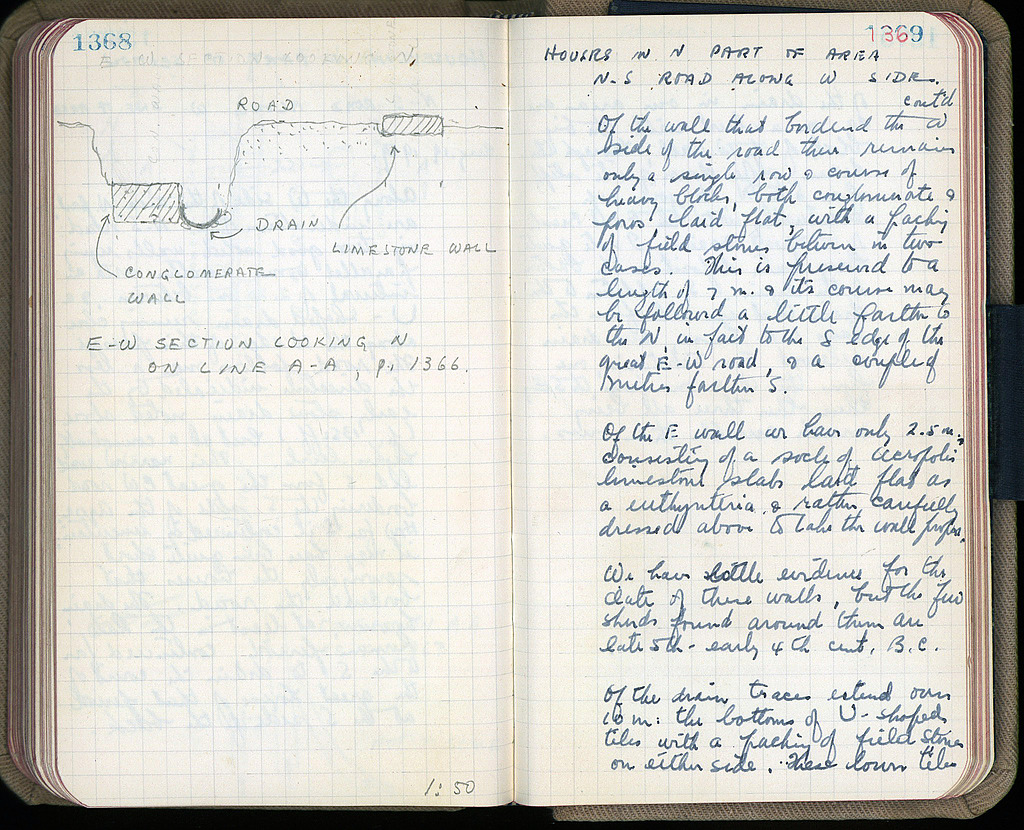 1368
ROAD
DRAIN
LIMESTONE WALL
CONGLOMERATE
WALL
E-W SECTION LOOKING N
ON LINE A-A, p. 1366.
1:50
1369
HOUSES IN N PART OF AREA
N-S ROAD ALONG W SIDE.
cont'd
Of the wall that bordered the W
side of the road there remains
only a single row & course of
heavy blocks, both conglomerate &
poros laid flat, with a packing
of field stones between in two
cases. This is preserved to a
length of 7 m. & its course may
be followed a little farther to
the N, in fact to the S edge of the
great E-W road, & a couple of
metres farther S.
Of the E wall we have only 2.5 m.,
consisting of a socle of Acropolis
limestone slabs laid flat as
a euthynteria, & rather carefully
dressed above to take the wall proper.
We have little evidence for the
date of these walls, but the few
sherds found around them are
late 5th - early 4th cent. B.C.
Of the drain traces extend over
10 m: the bottoms of U-shaped
tiles with a packing of field stones
on either side. These lower tiles